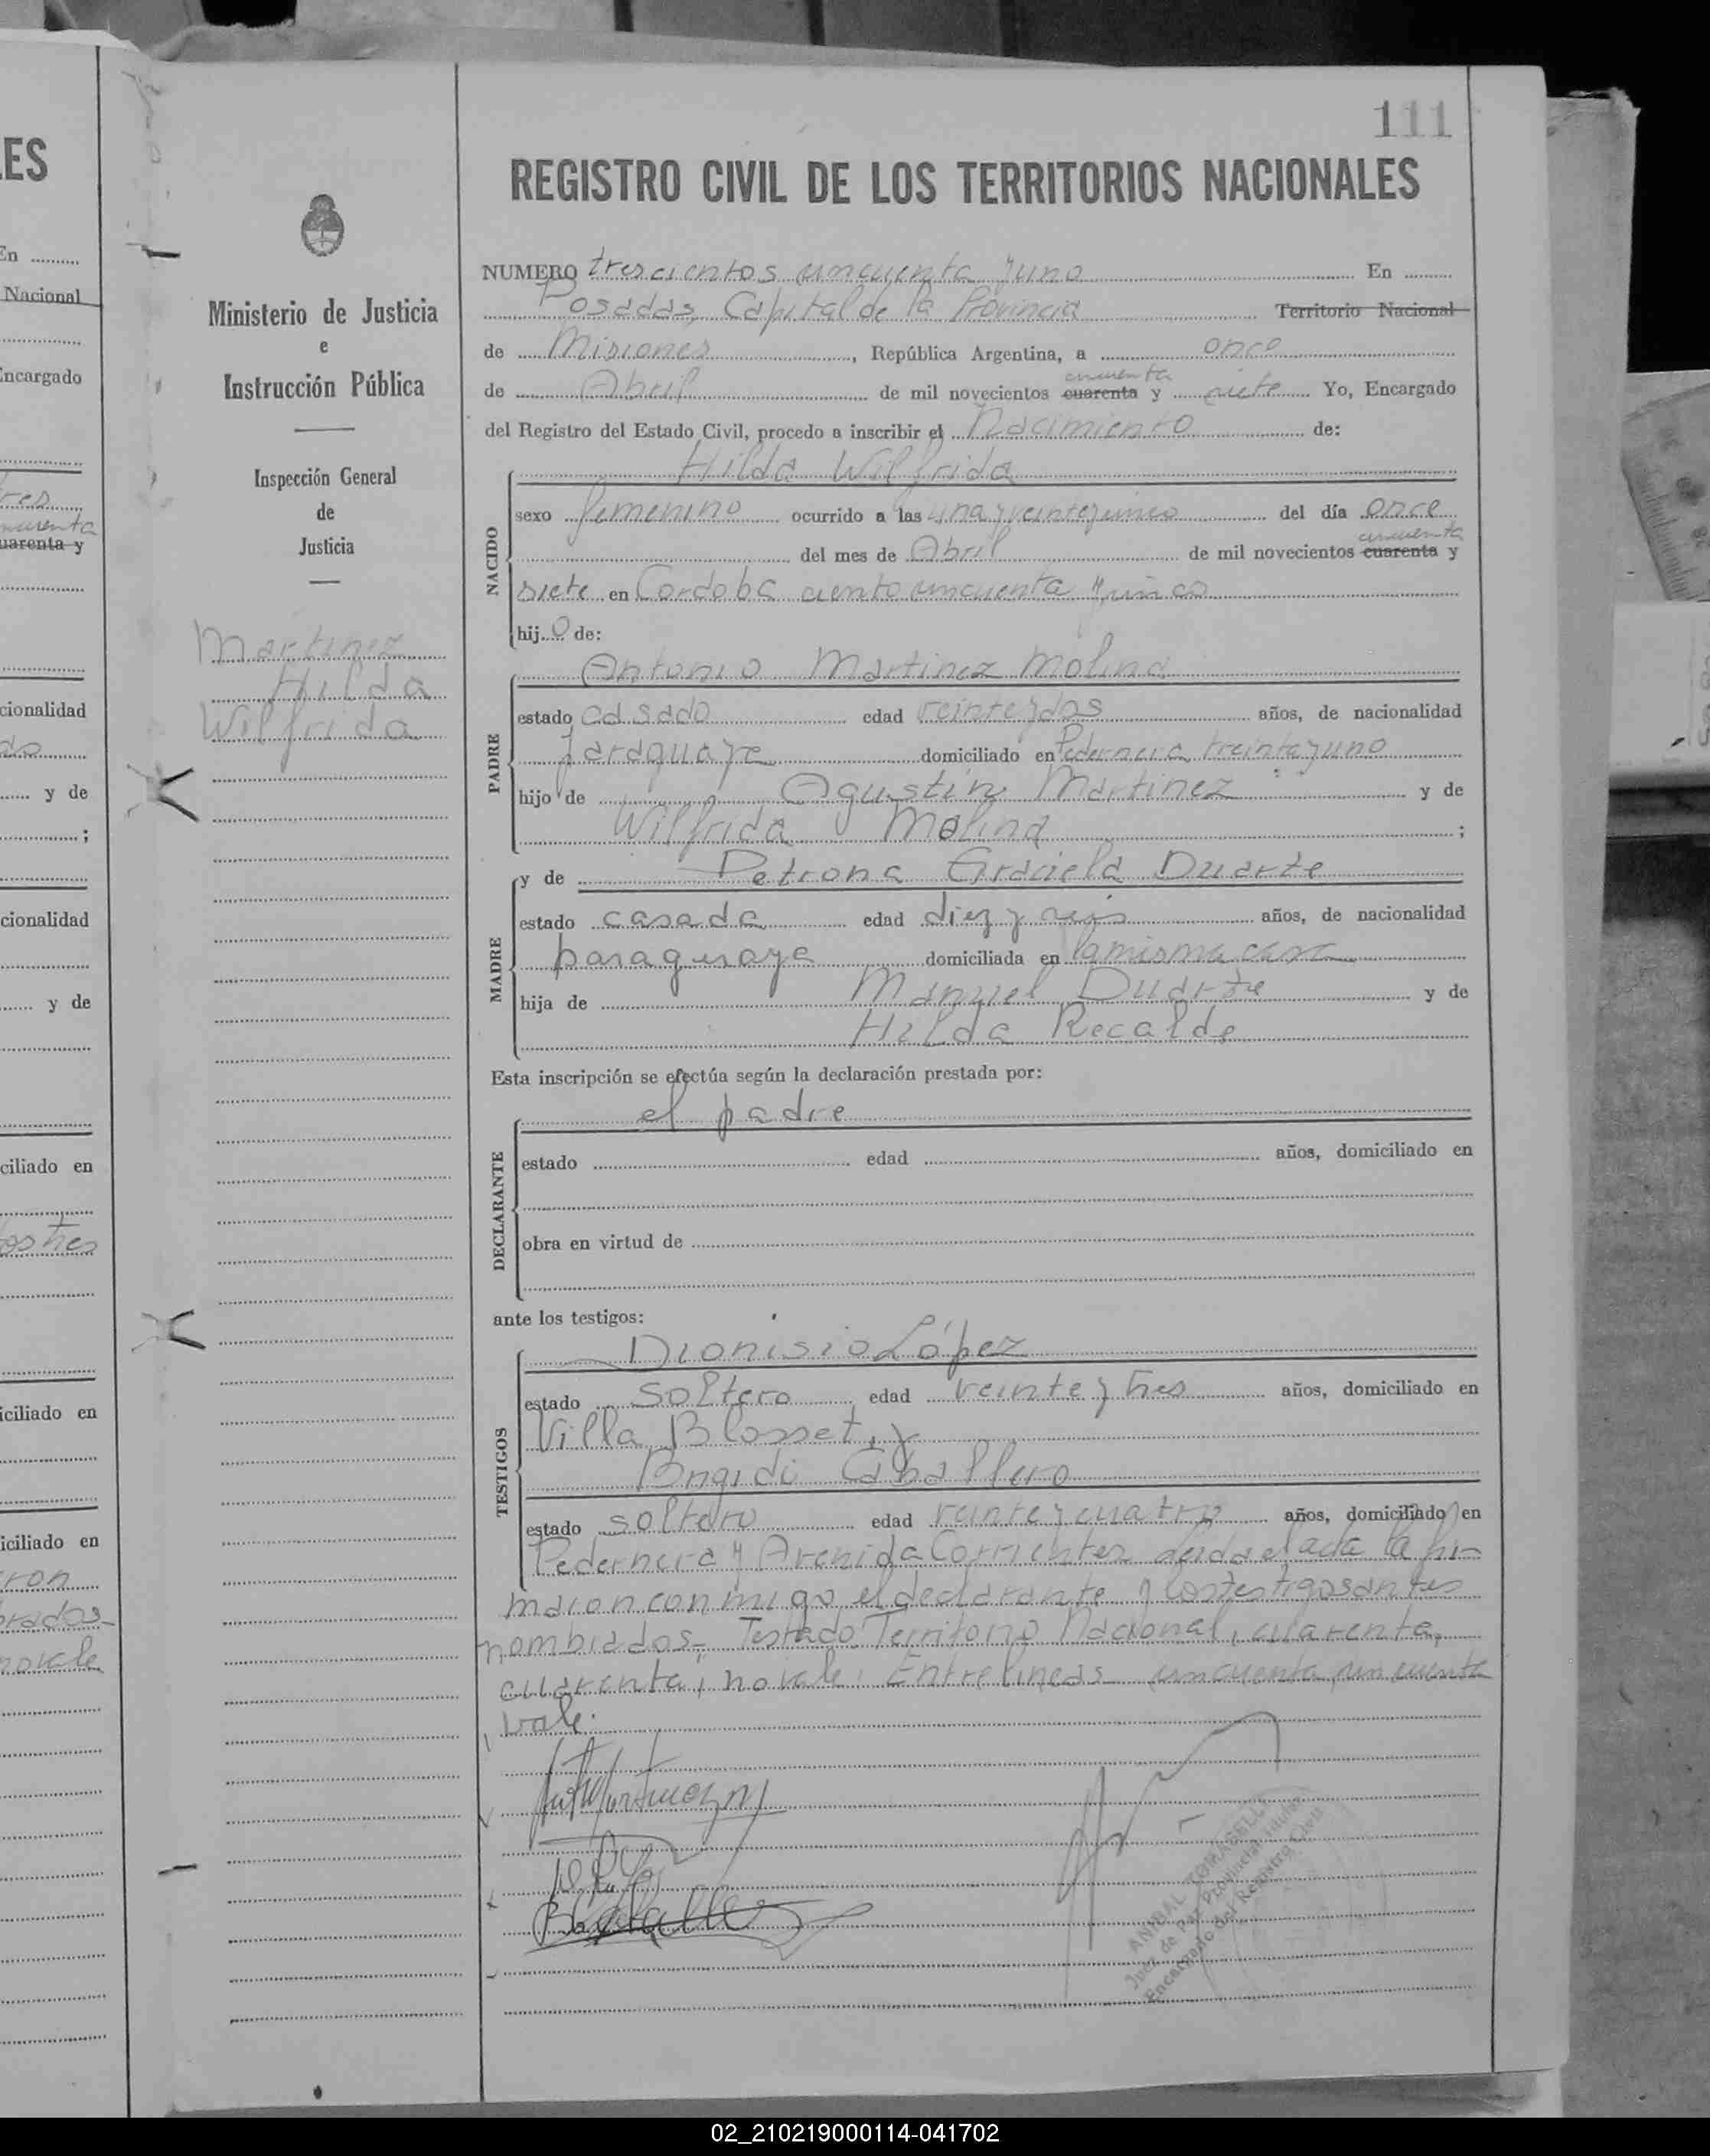 111
REGISTRO CIVIL DE LOS TERRITORIOS NACIONALES
Ministerio de Justicia
e
Instrucción Pública
Inspección General
de
Justicia
Martinez
Hilda
Wilfrida
NUMERO trescientos cincuenta y uno En
Posadas, Capital de la Provincia Territorio Nacional
de Misiones, República Argentina, a once
cincuenta
de Abril de mil novecientos cuarenta y siete Yo, Encargado
del Registro del Estado Civil, procedo a inscribir el Nacimiento de:
NACIDO
Hilda Wilfrida
sexo femenino ocurrido a las una y veinte y cinco del día once
cincuenta
del mes de Abril de mil novecientos cuarenta y
siete en Cordoba ciento cincuenta y cinco
hij o de:
PADRE
Antonio Martinez Molina
estado casado edad veinte y dos años, de nacionalidad
paraguaya domiciliado en Pedernera treinta y uno
hijo de Agustin Martinez y de
Wilfrida Molina ;
MADRE
y de Petrona Graciela Duarte
estado casada edad diez y seis años, de nacionalidad
paraguaya domiciliada en la misma casa
hija de Manuel Duarte y de
Hilda Recalde
Esta inscripción se efectúa según la declaración prestada por:
DECLARANTE
el padre
estado edad años, domiciliado en
obra en virtud de
ante los testigos:
TESTIGOS
Dionisio López
estado soltero edad veinte y tres años, domiciliado en
Villa Blosset, y
Brigido Caballero
estado soltero edad veinte y cuatro años, domiciliado en
Pedernera y Avenida Corrientes leida el acta la fir-
maron conmigo el declarante y los testigos antes
nombrados.- Testado Territorio Nacional, cuarenta,
cuarenta, no vale; Entrelineas cincuenta, cincuenta
vale.
ANIBAL
Juez de Paz Provincial Titular
Encargado del Registro Civil
02_210219000114-041702